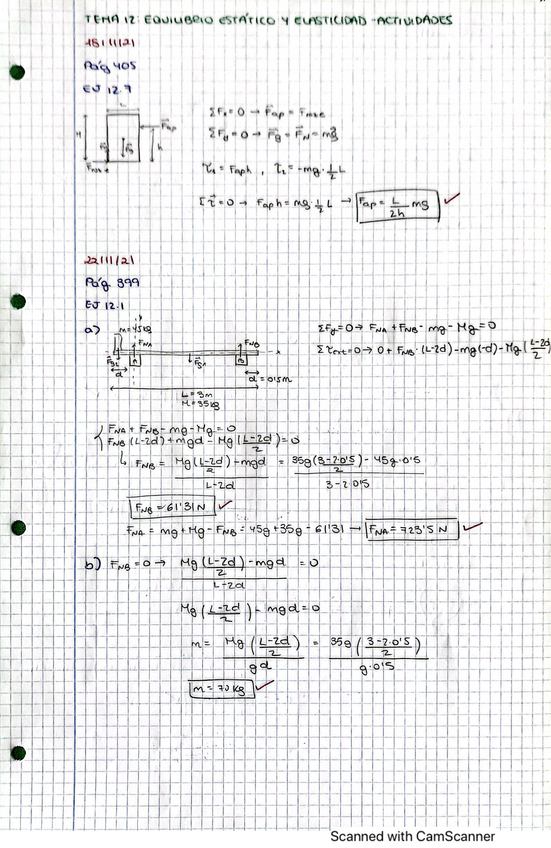 TEMA 12: EQUILIBRIO ESTÁTICO Y ELASTICIDAD - ACTIVIDADES
15/11/21
Pág 405
EJ 12.7
L
H
F_ap
h
F_g
ΣFx=0 → F_ap = F_roze
ΣFy=0 → F_g = F_N = mg
τ1 = F_ap h, τ2 = -mg · 1/2 L
Στ=0 → F_ap h = mg · 1/2 L → F_ap = L/2h mg
22/11/21
Pág 399
EJ 12.1
a)
m=45kg
F_NA
F_NB
A
B
x
d
d = 0'5m
L = 3m
M = 35kg
ΣFy=0 → F_NA + F_NB - mg - Mg = 0
Στext=0 → 0 + F_NB · (L-2d) - mg(-d) - Mg (L-2d / 2)
F_NA + F_NB - mg - Mg = 0
F_NB (L-2d) + mgd - Mg (L-2d / 2) = 0
F_NB = Mg (L-2d / 2) - mgd / L-2d = 35g (3-2·0'5 / 2) - 45g·0'5 / 3-2·0'5
F_NB = 61'31 N
F_NA = mg + Mg - F_NB = 45g + 35g - 61'31 → F_NA = 723'5 N
b) F_NB = 0 → Mg (L-2d / 2) - mgd / L-2d = 0
Mg (L-2d / 2) - mgd = 0
m = Mg (L-2d / 2) / gd = 35g (3-2·0'5 / 2) / g·0'5
m = 70 kg
Scanned with CamScanner